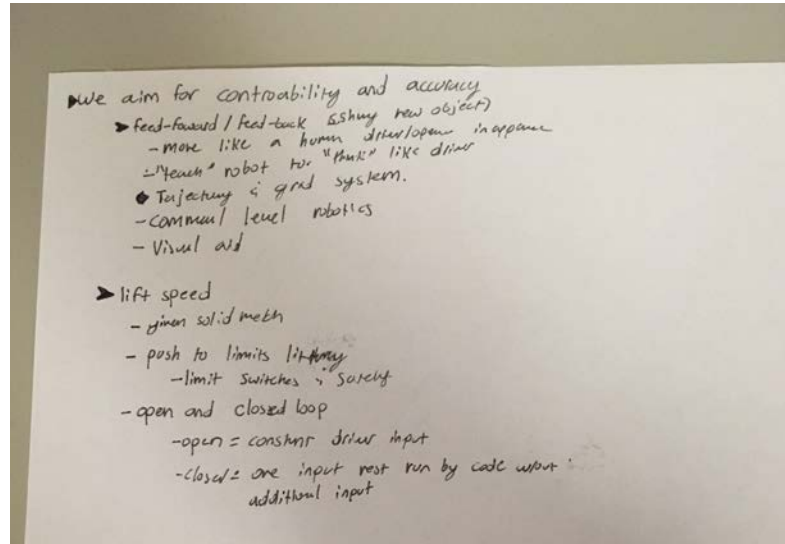 We aim for controability and accuracy
feed-foward / feed-back new object)
- more like a human driver
- "teach" robot "think" like driver
Trajectory & grid system.
- level robotics
- Visual aid
lift speed
- given solid mech
- push to limits
- limit switches & safety
- open and closed loop
- open = constnt driver input
- closed = one input rest run by code w/out
additional input